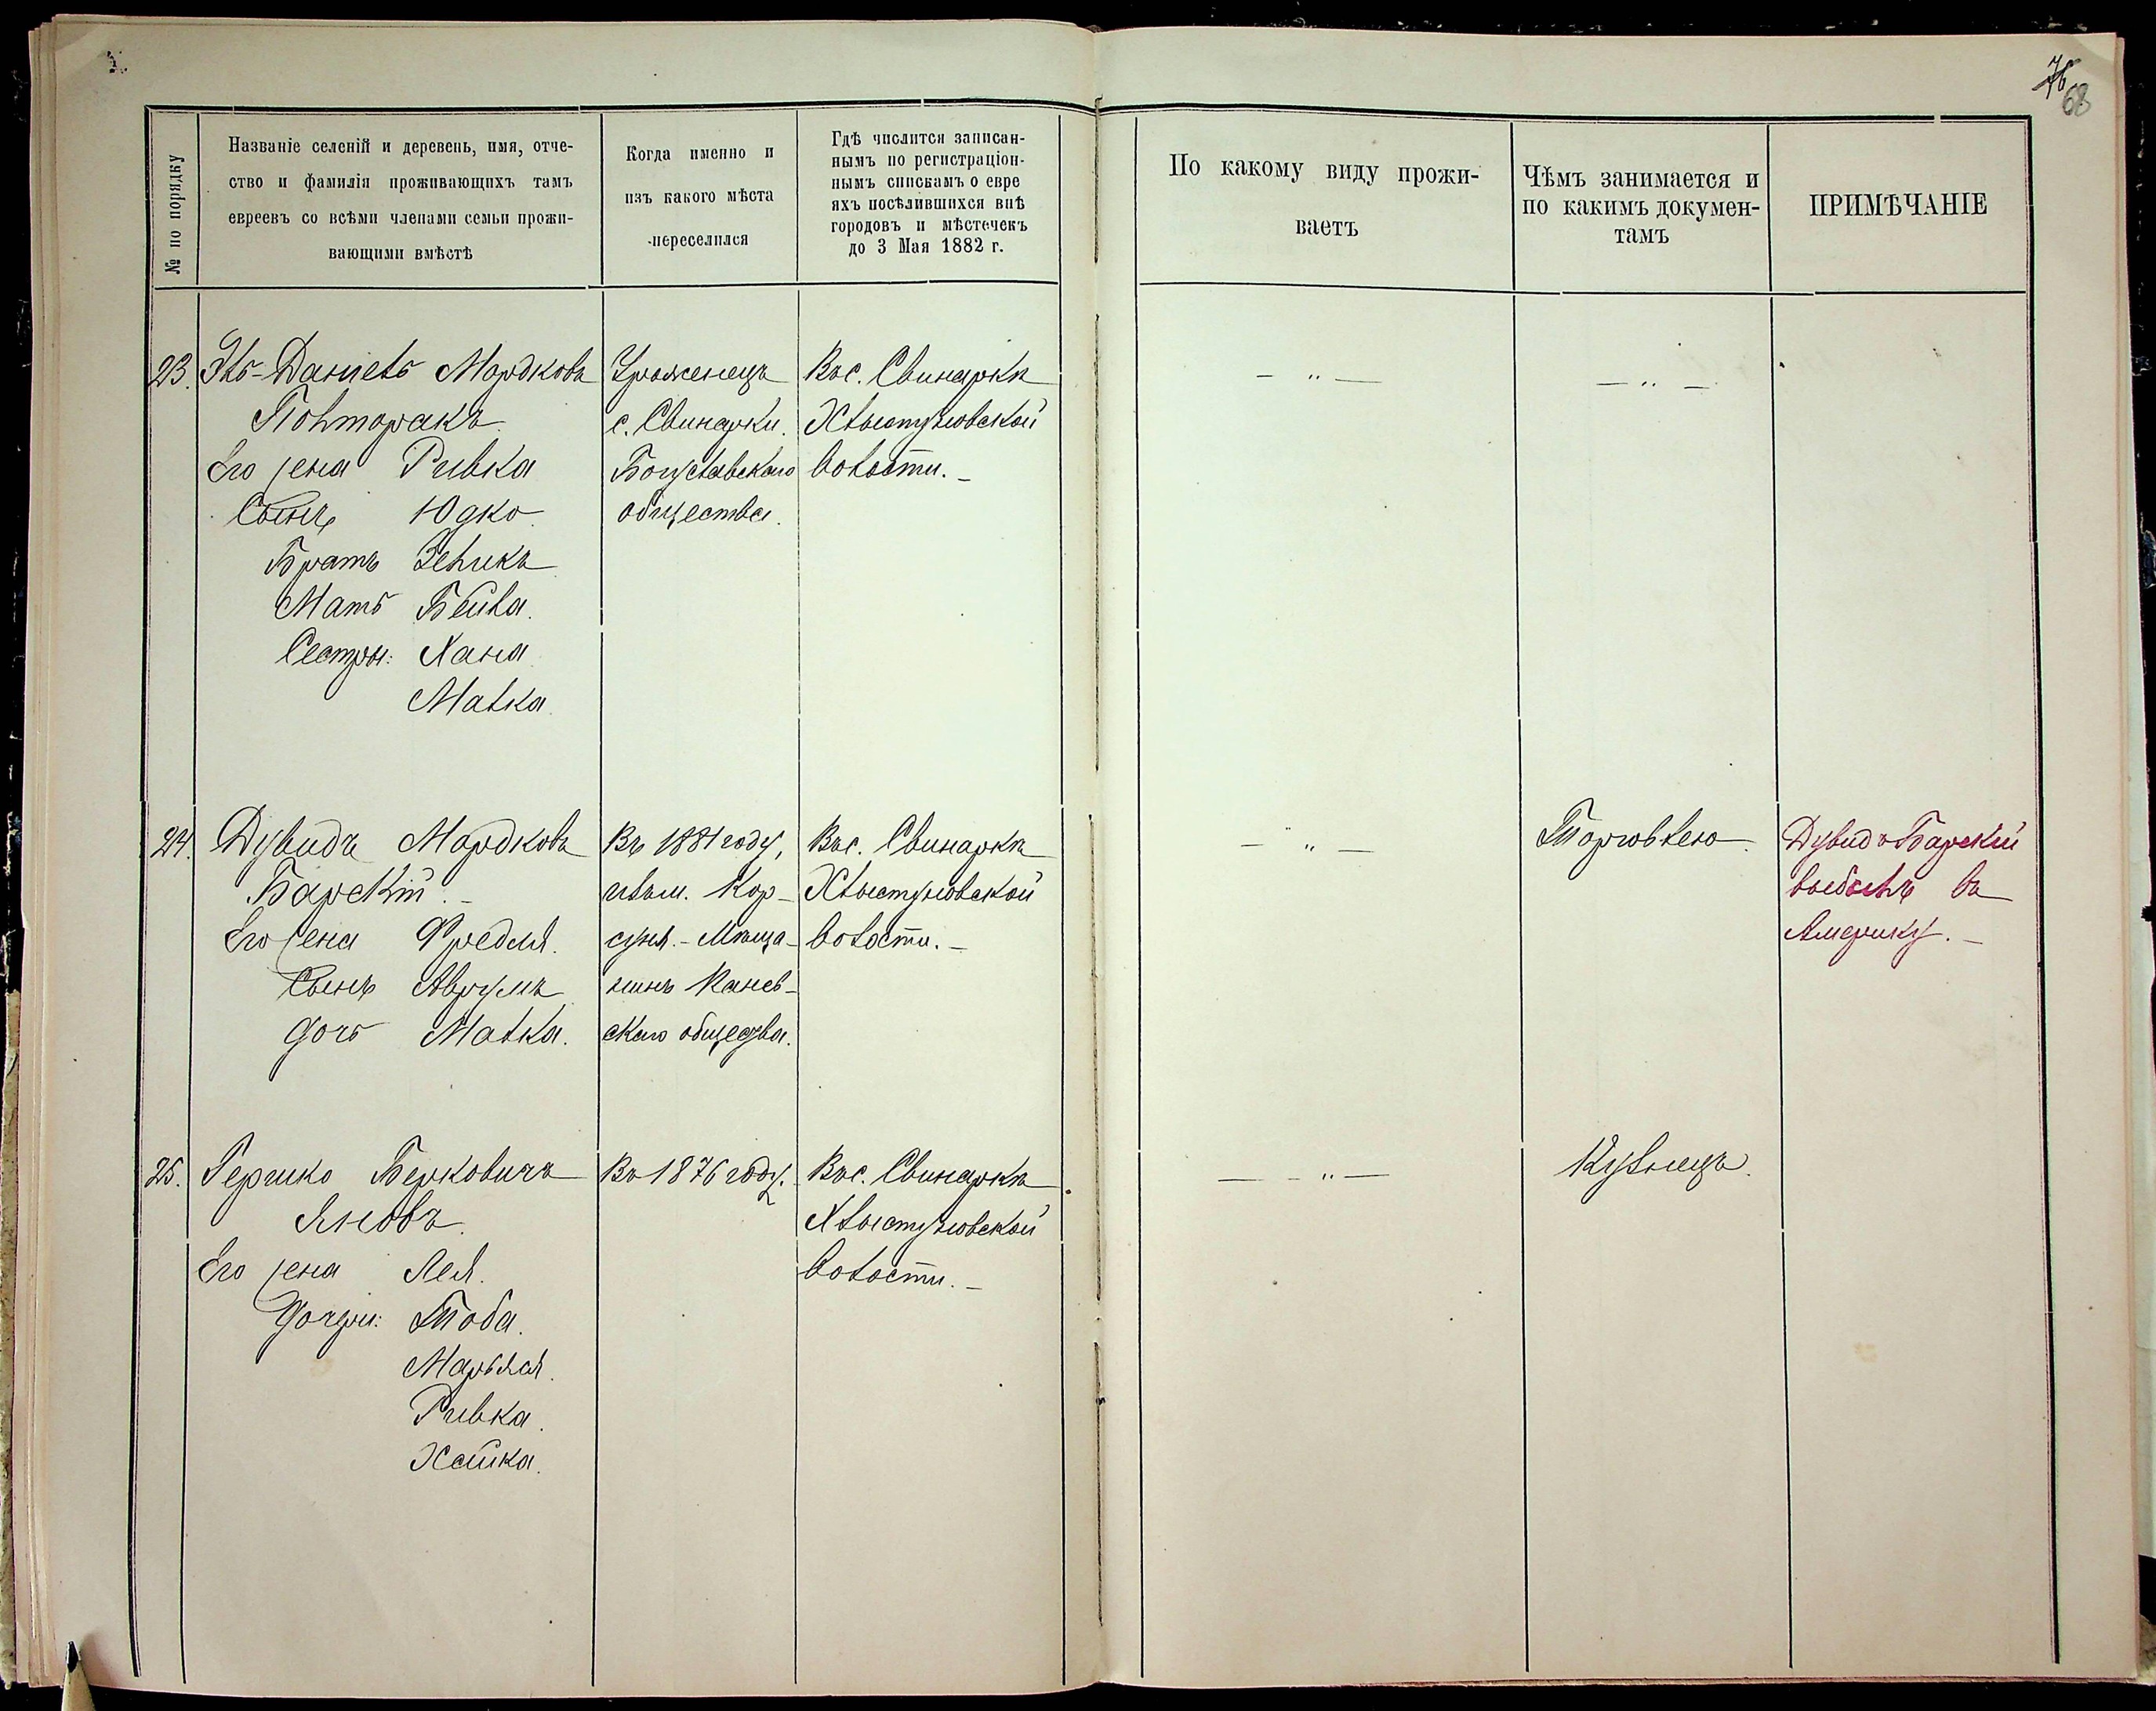 76
68
№ по порядку
Названіе селеній и деревень, имя, отче-
ство и фамилія проживающихъ тамъ
евреевъ со всѣми членами семьи прожи-
вающими вмѣстѣ
Когда именно и
изъ какого мѣста
переселился
Гдѣ числится записан-
нымъ по регистраціон-
нымъ спискамъ о евре
яхъ посѣлившихся внѣ
городовъ и мѣстечекъ
до 3 Мая 1882 г.
По какому виду прожи-
ваетъ
Чѣмъ занимается и
по какимъ докумен-
тамъ
ПРИМѢЧАНІЕ
23. Эль-Даніель Мордковъ
Полторакъ.
Его жена Ривка
Сынъ Юдко
Братъ Зейликъ
Мать Бейла.
Сестры: Хана
Малка
Уроженецъ
с. Свинарки.
Богуславскаго
общества.
Въ с. Свинаркѣ
Хлыстуновской
волости. —
— „ —
— „ —
24. Дувидъ Мордковъ
Барскій. —
Его жена Фредля.
Сынъ Аврумъ
дочь Малка.
Въ 1881 году,
изъ м. Кор-
суня. - Мѣща-
нинъ Канев-
скаго общества.
Въ с. Свинаркѣ
Хлыстуновской
волости. —
— „ —
Торговлею.
Дувидъ Барскій
выбылъ въ
Америку. —
25. Гершко Берковичъ
Яновъ.
Его жена Лея.
Дочери: Тоба.
Марьяся.
Ривка.
Хайка.
Въ 1876 году.
Въ с. Свинаркѣ
Хлыстуновской
волости. —
— „ —
Кузнецъ.